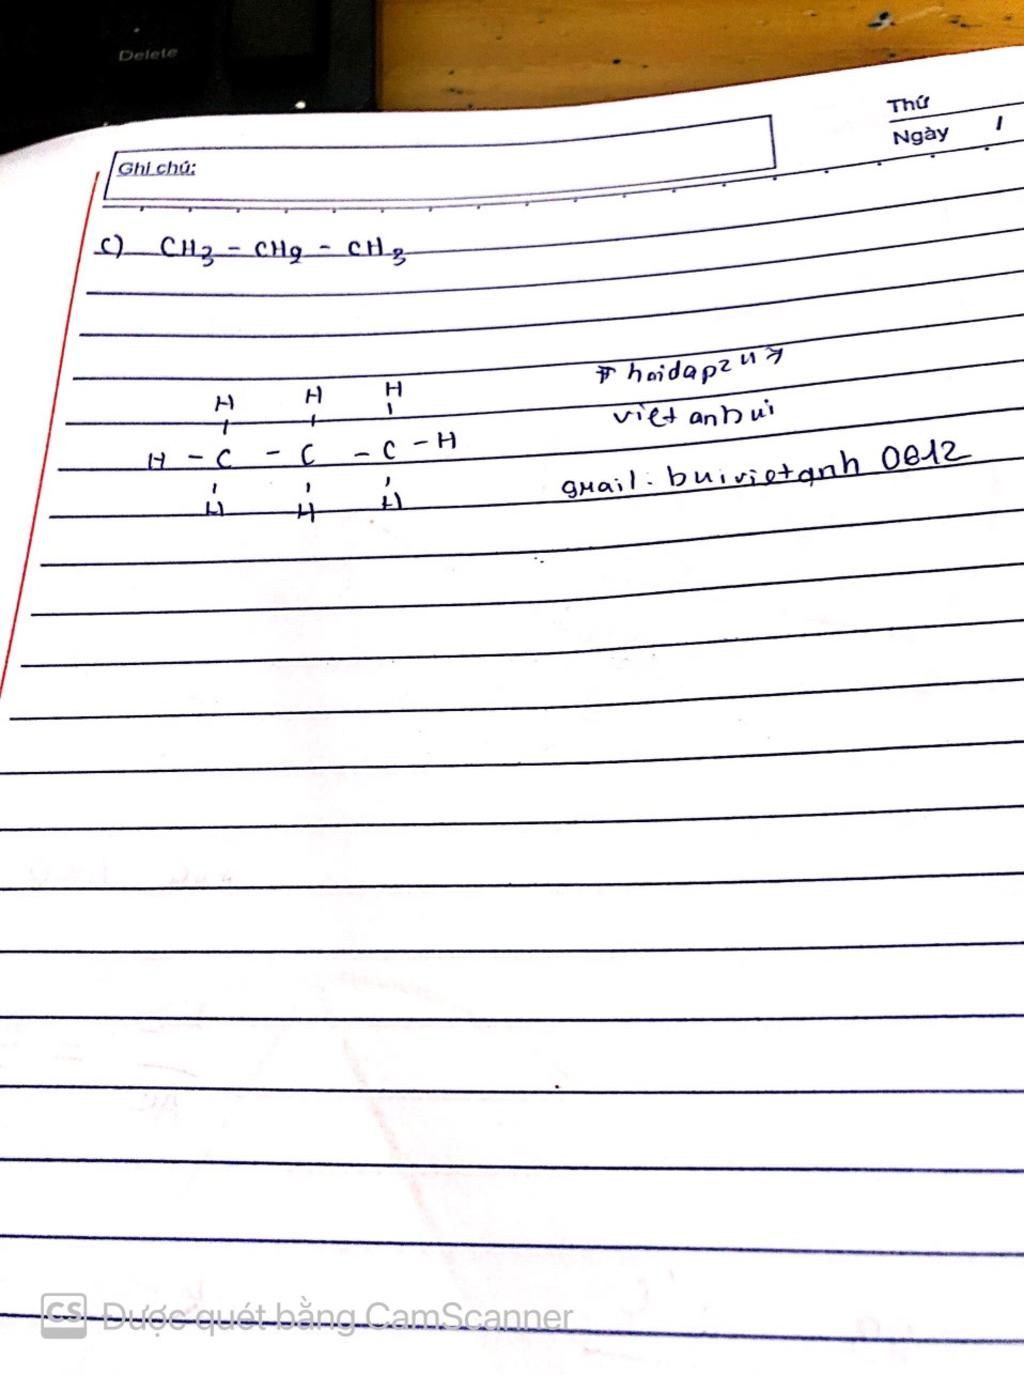 Delete
Thứ
Ngày /
Ghi chú:
c) CH3 - CH2 - CH3
H H H
H - C - C - C - H
H H H
# hoidap247
vietanbui
gmail: buivietanh 0612
CS Được quét bằng CamScanner